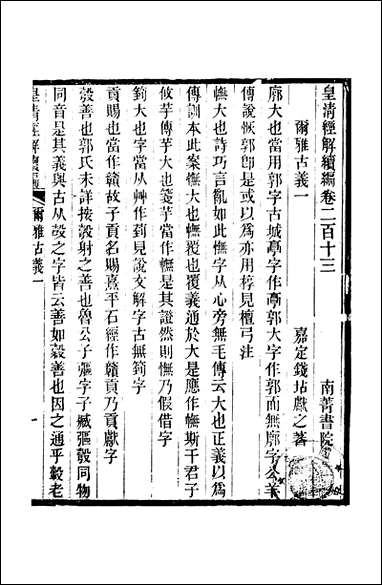 皇清經解續編卷二百十三
南菁書院
爾雅古義一
嘉定錢坫獻之著
廓大也當用郭字古城亭字作𩫏郭大字作郭而無廓字公羊
傳說恢郭卽是或以為亦用桴見檀弓注
幠大也詩巧言亂如此幠字从心旁無毛傳云大也正義以為
傳訓本此案幠大也幠覆也覆義通於大是應作幠斯干君子
攸芋傳芋大也箋芋當作幠是其證然則憮乃假借字
箌大也字當从艸作菿見說文解字古無箌字
貢賜也當作贛故子貢名賜熹平石經作贛貢乃貢獻字
彀善也郭氏未詳按彀射之善也魯公子彄字子臧彄彀同物
同音是其義與古从㱿之字皆云善如穀善也因之通乎穀老
皇清經解續編
爾雅古義一
一